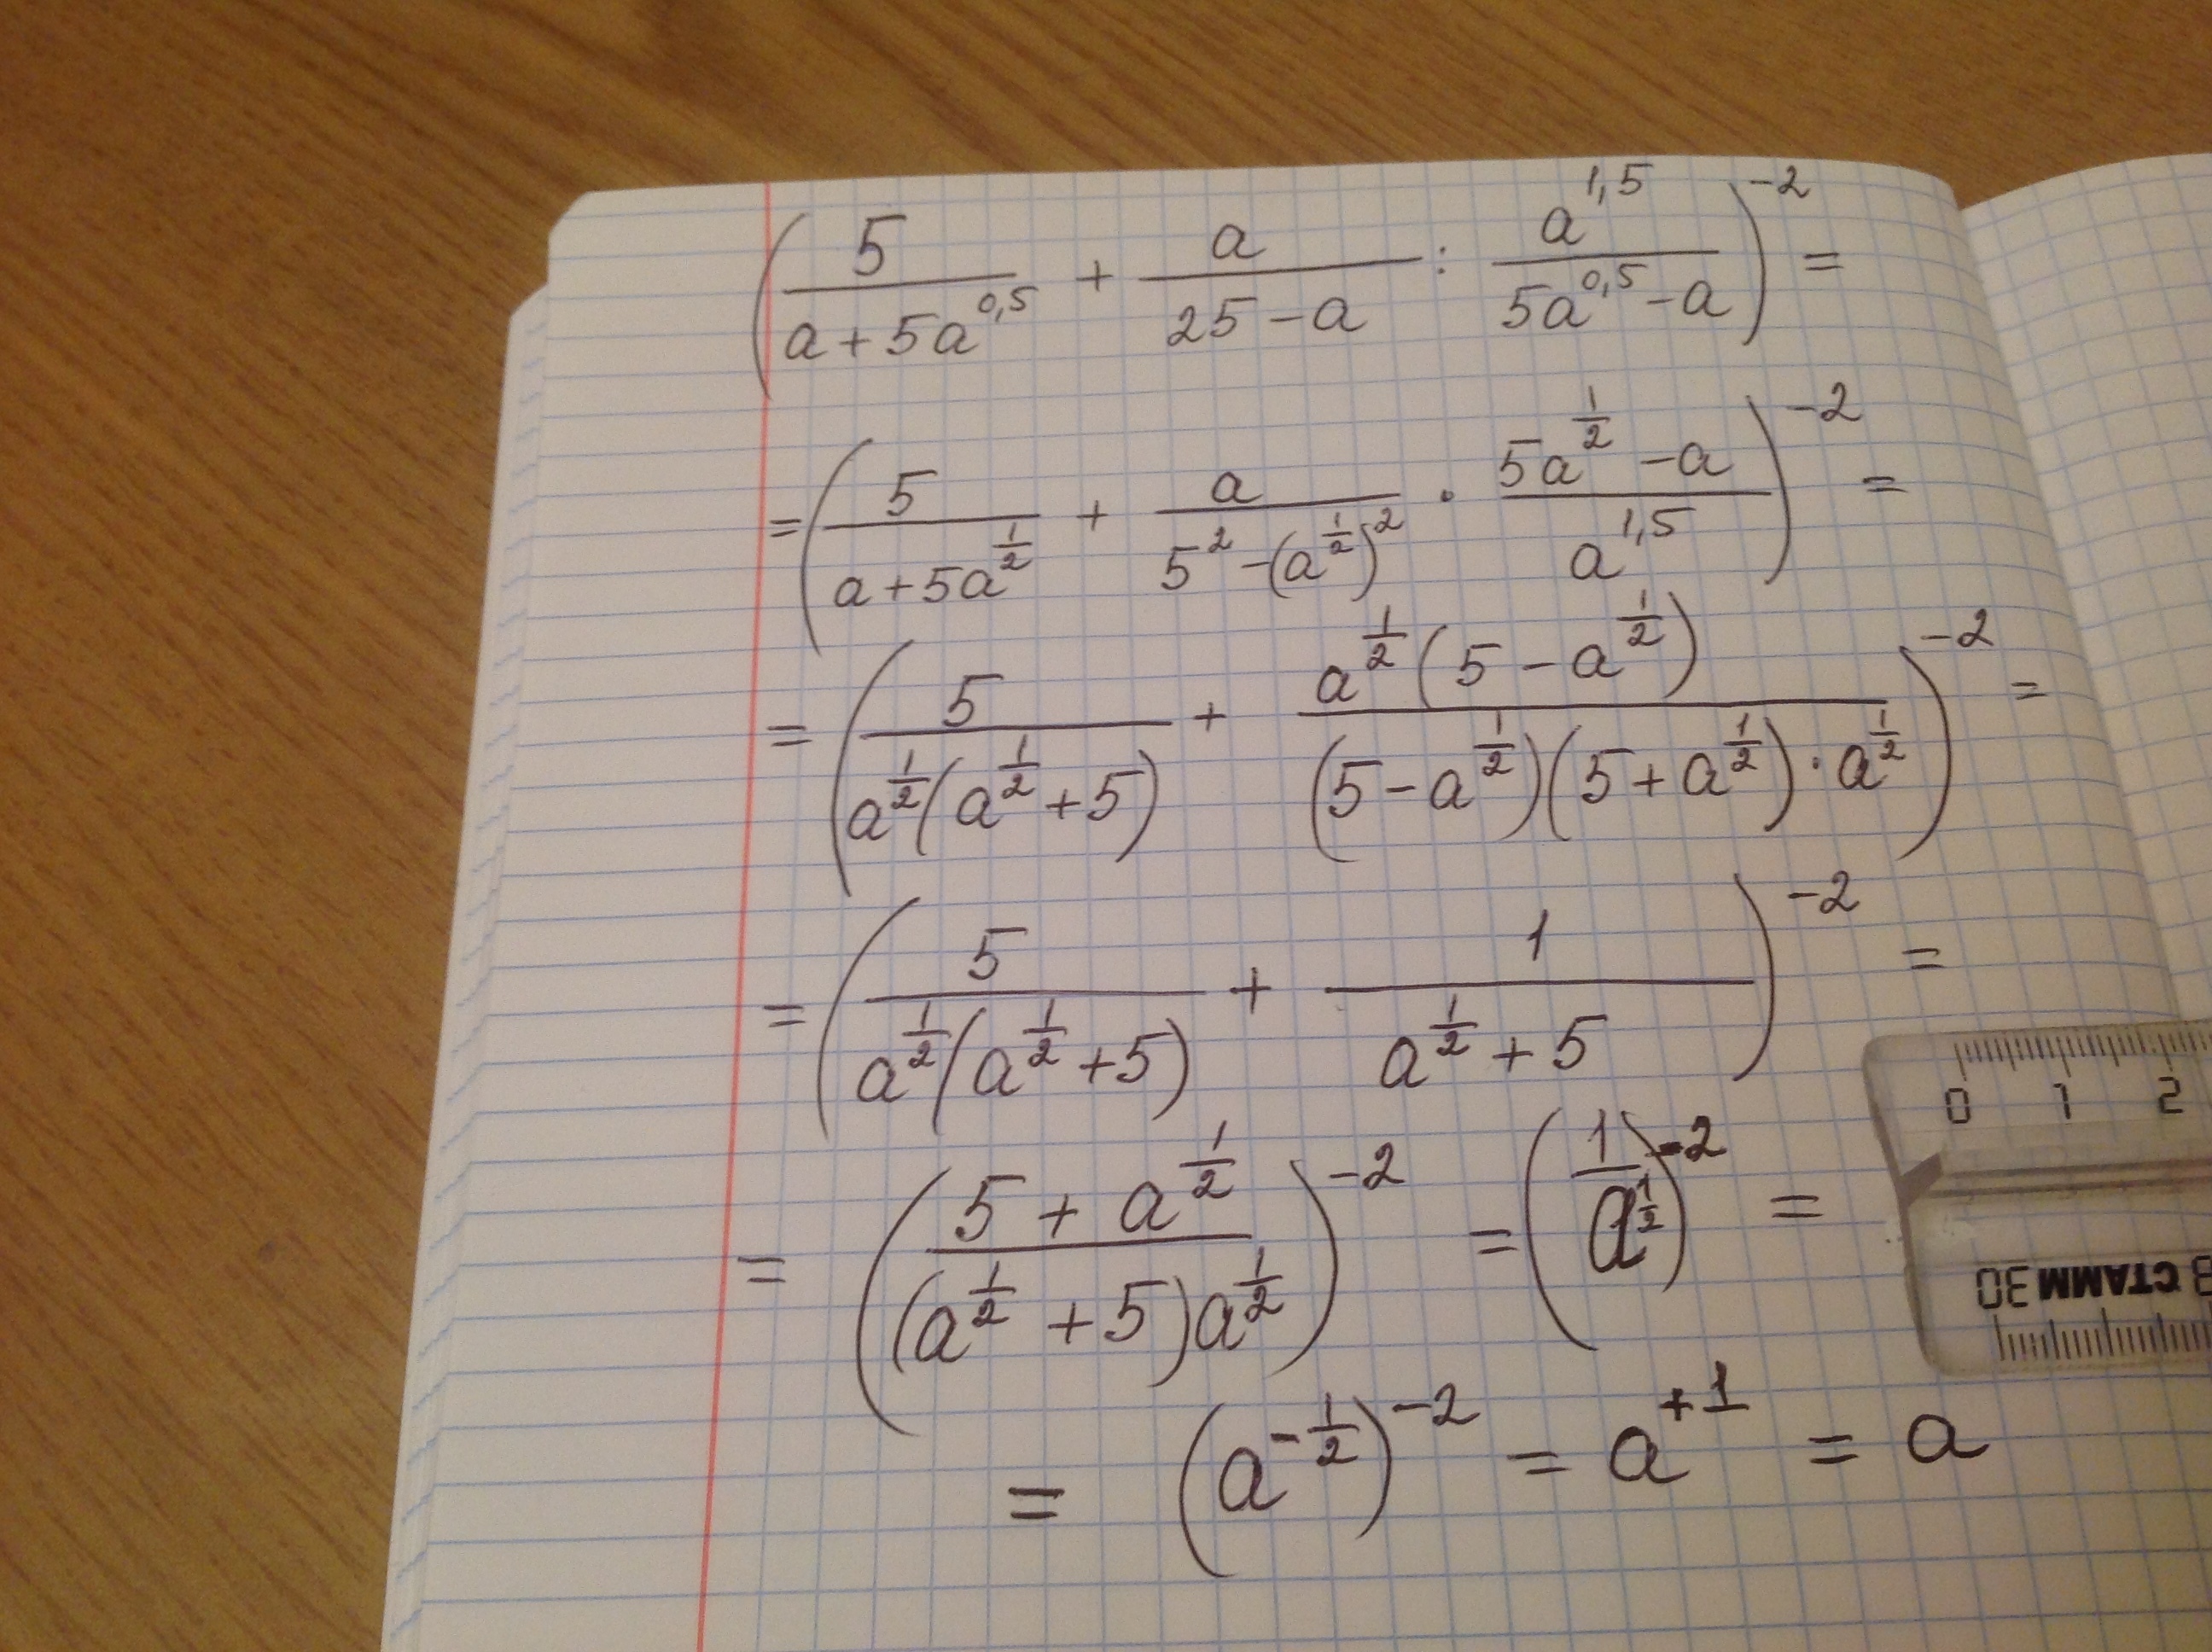 (5/(a+5a^0,5) + a/(25-a) : a^1,5/(5a^0,5-a))^-2 =
= (5/(a+5a^(1/2)) + a/(5^2-(a^(1/2))^2) · (5a^(1/2)-a)/a^1,5)^-2 =
= (5/(a^(1/2)(a^(1/2)+5)) + a^(1/2)(5-a^(1/2))/((5-a^(1/2))(5+a^(1/2))·a^(1/2)))^-2 =
= (5/(a^(1/2)(a^(1/2)+5)) + 1/(a^(1/2)+5))^-2 =
= ((5+a^(1/2))/((a^(1/2)+5)a^(1/2)))^-2 = (1/a^(1/2))^-2 =
= (a^(-1/2))^-2 = a^+1 = a
0 1 2
СТАММ 30